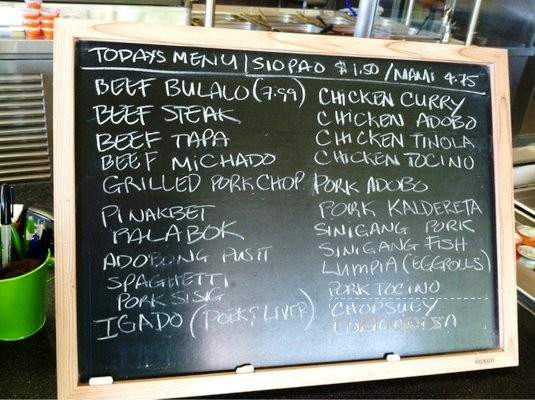 TODAYS MENU | SIOPAO $1.50 / MAMI 4.75
BEEF BULALO (7.99)
BEEF STEAK
BEEF TAPA
BEEF MICHADO
GRILLED PORK CHOP
PINAKBET
PALABOK
ADOBONG PUSIT
SPAGHETTI
PORK SISIG
IGADO (PORK & LIVER)
CHICKEN CURRY
CHICKEN ADOBO
CHICKEN TINOLA
CHICKEN TOCINO
PORK ADOBO
PORK KALDERETA
SINIGANG PORK
SINIGANG FISH
LUMPIA (EGGROLLS)
PORK TOCINO
CHOPSUEY